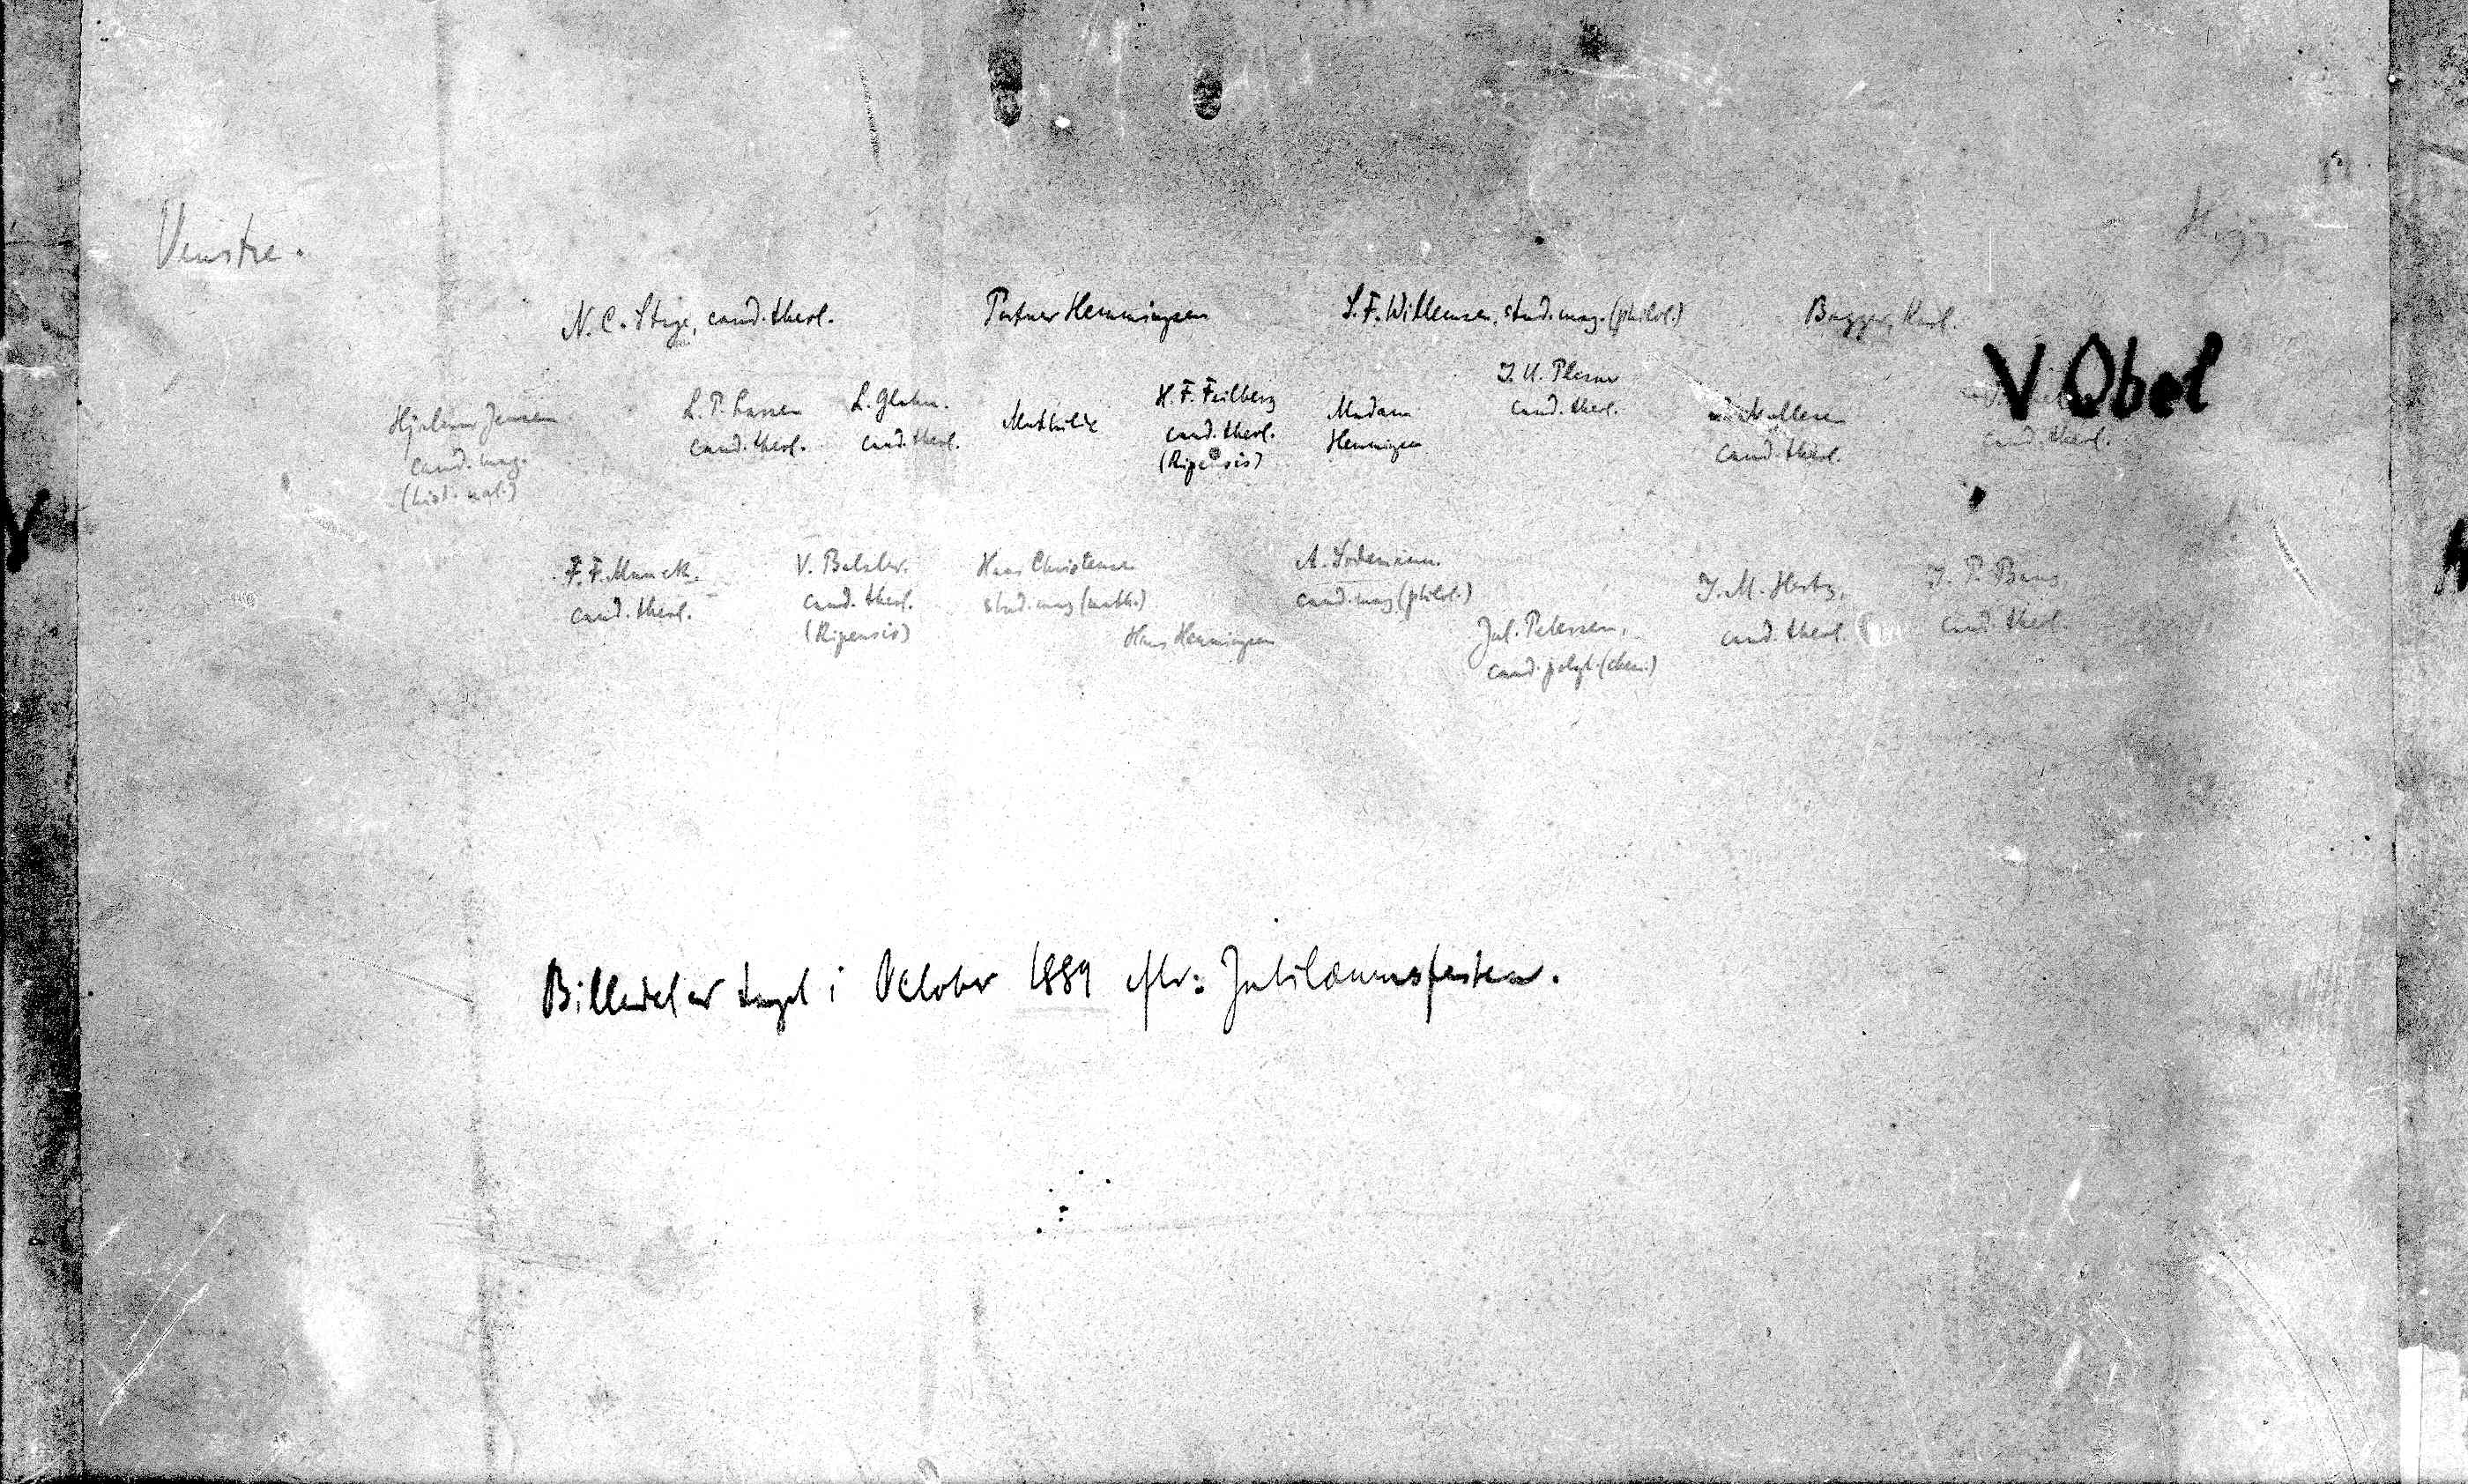 Venstre.
N. C. Stige, cand. theol.
Portner Hemmingsen
stud. mag. (philol.)
Bagger, theol.
V Obel
Hjalmar Jensen
cand. mag.
(hist. nat.)
L. P. Larsen
cand. theol.
L. Glahn.
cand. theol.
Mathilde
H. F. Feilberg
cand. theol.
(Ripensis)
Madam
Hemmingsen
cand. theol.
cand. theol.
cand. theol.
F. F. Munck.
cand. theol.
V. Balslev.
cand. theol.
(Ripensis)
Hans Christensen
stud. mag (math.)
Hans Hemmingsen
cand. mag (philol.)
Jul. Petersen,
cand. polyt. (chem.)
J. M. Hertz,
cand. theol.
J. P. Bang
cand. theol.
Billedet er taget i October 1889 eftr: Jubilæumsfesten.